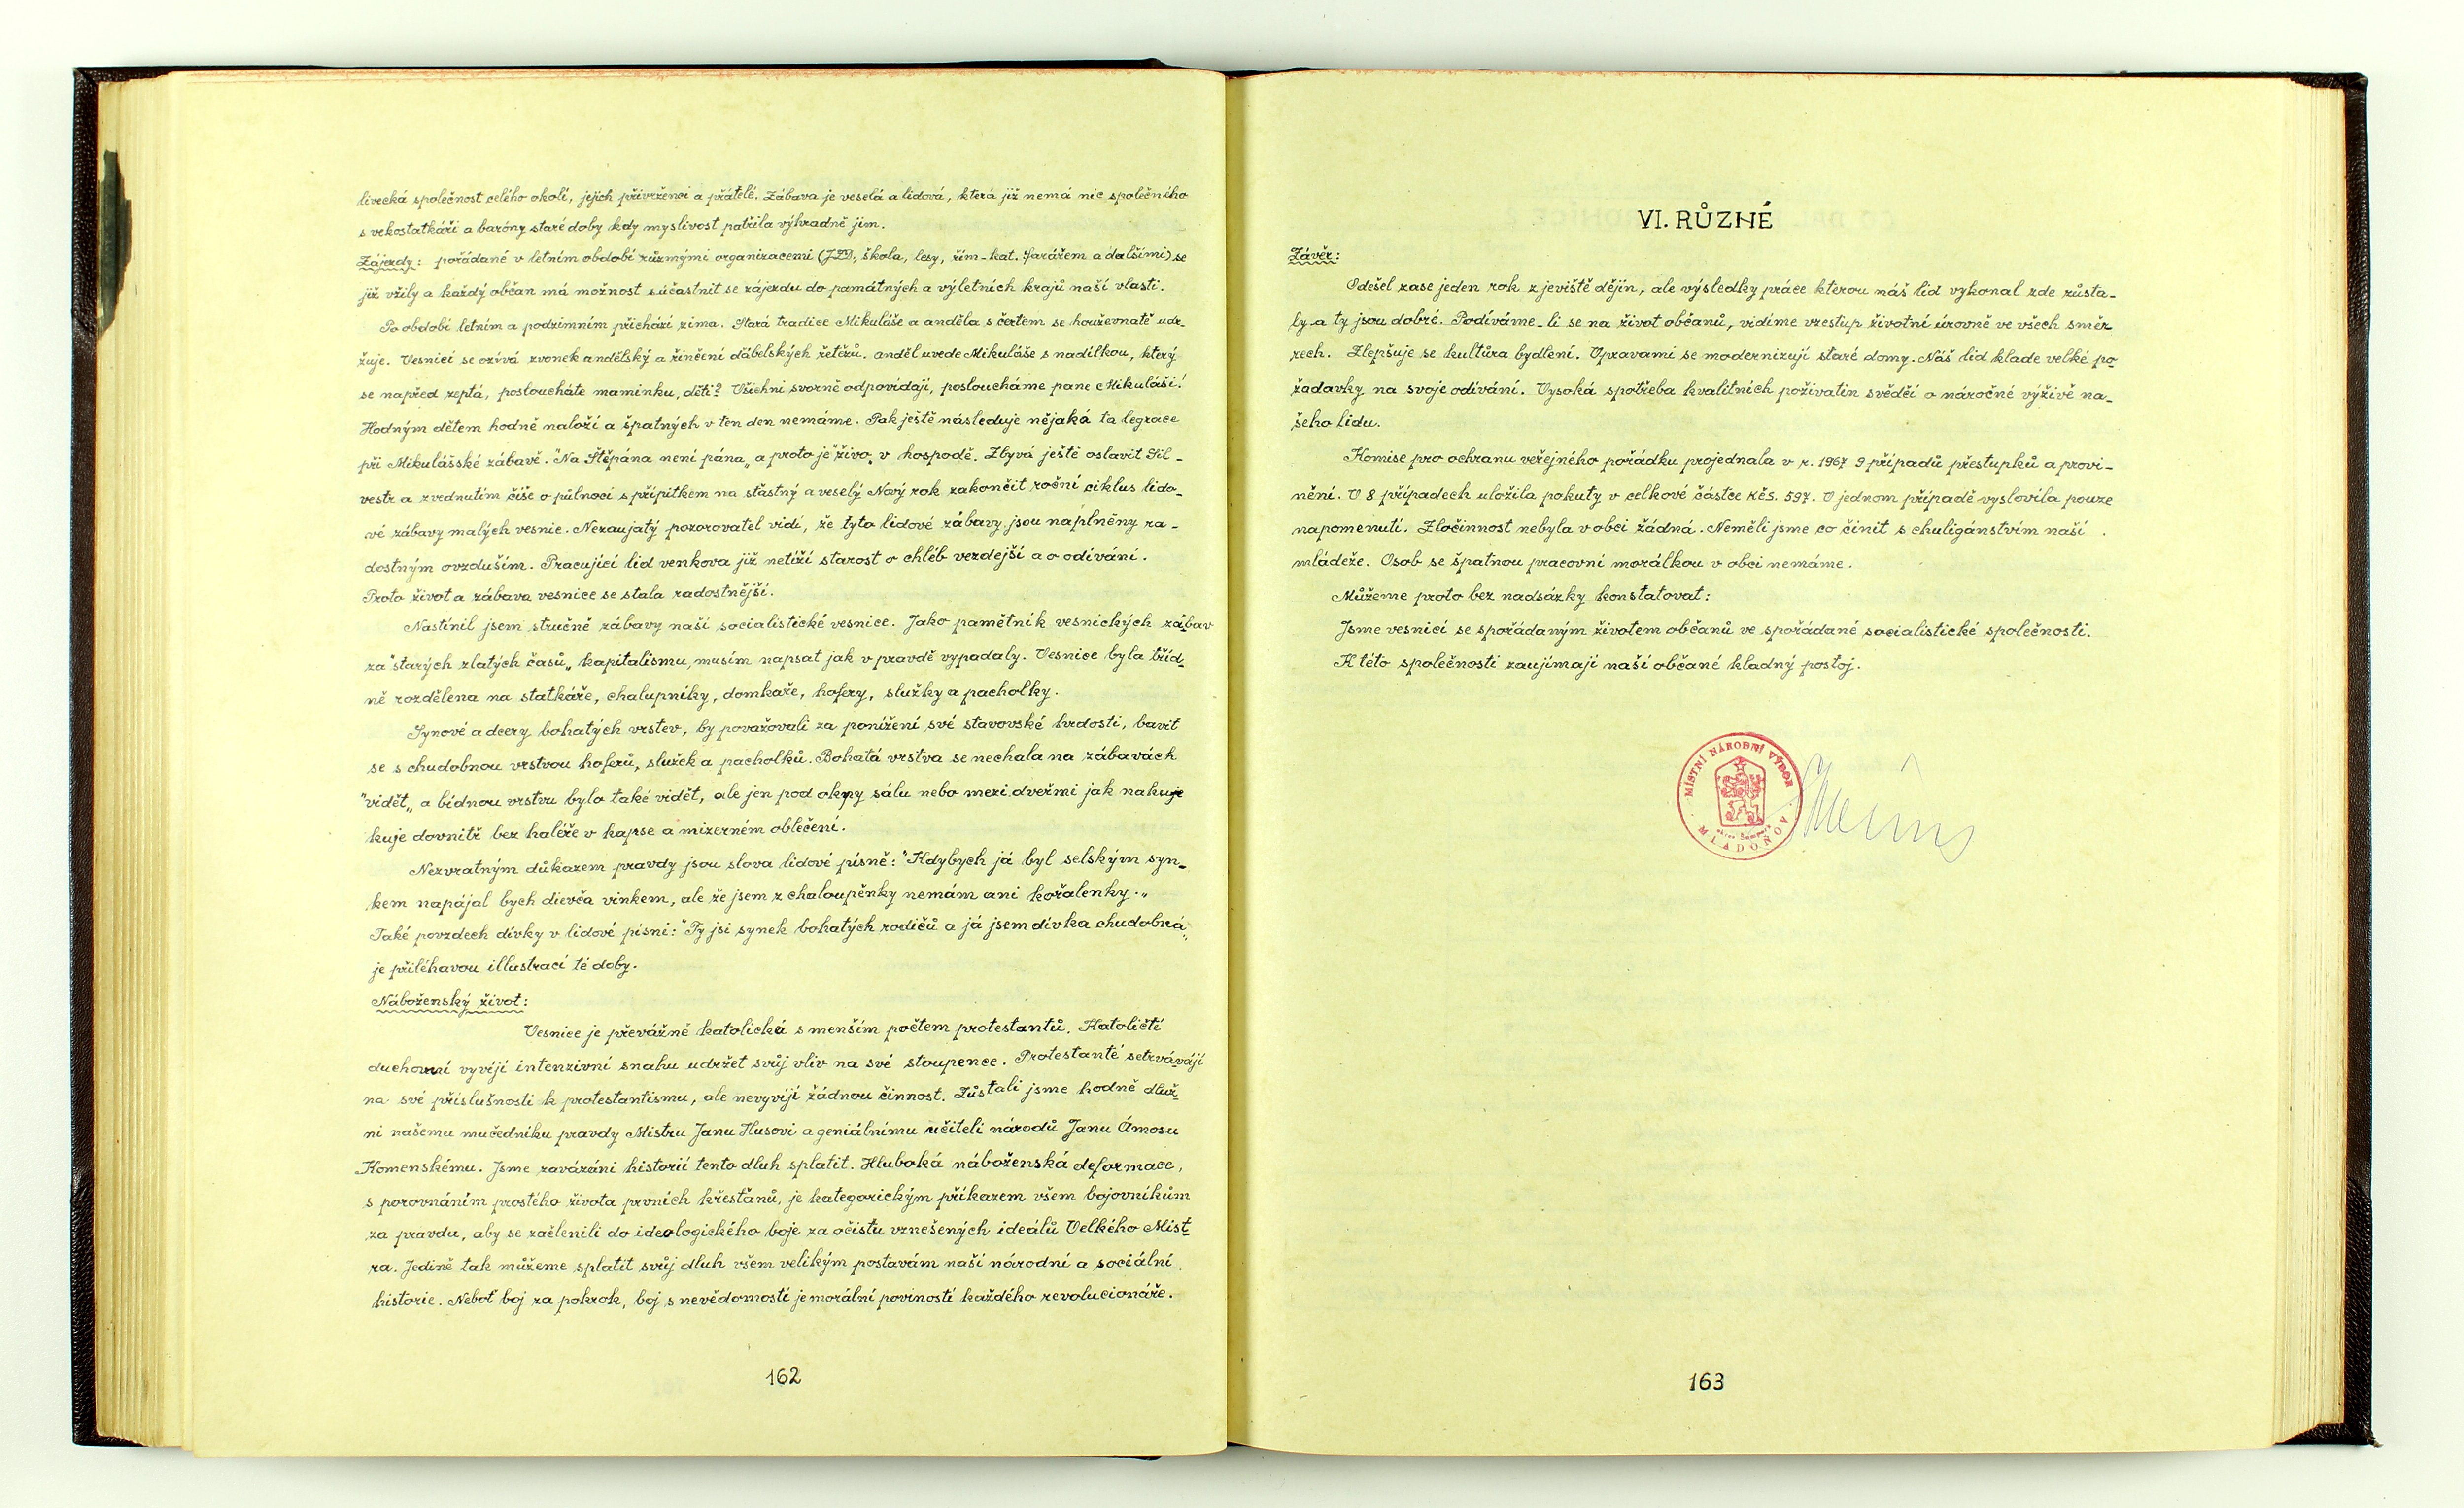 livecká společnost celého okolí, jejich přívrženci a přátelé. Zábava je veselá a lidová, která již nemá nic společného
s velkostatkáři a baróny staré doby kdy myslivost patřila výhradně jim.
Zájezdy: pořádané v letním období různými organizacemi (JZD, škola, lesy, řím-kat. farářem a dalšími) se
již vžily a každý občan má možnost súčastnit se zájezdu do památných a výletních krajů naší vlasti.
Po období letním a podzimním přichází zima. Stará tradice Mikuláše a anděla s čertem se houževnatě udr-
žuje. Vesnicí se ozývá zvonek andělský a řinčení ďábelských řetězů. anděl uvede Mikuláše s nadílkou, který
se napřed zeptá, posloucháte maminku, děti? Všichni svorně odpovídají, posloucháme pane Mikuláši!
Hodným dětem hodně naloží a špatných v ten den nemáme. Pak ještě následuje nějaká ta legrace
při Mikulášské zábavě. "Na Štěpána není pána„ a proto je "živo„ v hospodě. Zbývá ještě oslavit Sil-
vestr a zvednutím číše o půlnoci s přípitkem na šťastný a veselý Nový rok zakončit roční ciklus lido-
vé zábavy malých vesnic. Nezaujatý pozorovatel vidí, že tyto lidové zábavy jsou naplněny ra-
dostným ovzduším. Pracující lid venkova již netíží starost o chléb vezdejší a o odívání.
Proto život a zábava vesnice se stala radostnější.
Nastínil jsem stručně zábavy naší socialistické vesnice. Jako pamětník vesnických zábav
za "starých zlatých časů„ kapitalismu, musím napsat jak v pravdě vypadaly. Vesnice byla tříd-
ně rozdělena na statkáře, chalupníky, domkaře, hofery, služky a pacholky.
Synové a dcery bohatých vrstev, by považovali za ponížení své stavovské hrdosti, bavit
se s chudobnou vrstvou hoferů, služek a pacholků. Bohatá vrstva se nechala na zábavách
"vidět„ a bídnou vrstvu bylo také vidět, ale jen pod okny sálu nebo mezi dveřmi jak nakuje
kuje dovnitř bez haléře v kapse a mizerném oblečení.
Nezvratným důkazem pravdy jsou slova lidové písně: "Kdybych já byl selským syn-
kem napájal bych dievča vinkem, ale že jsem z chaloupěnky nemám ani kořalenky.„
Také povzdech dívky v lidové písni: "Ty jsi synek bohatých rodičů a já jsem dívka chudobná„
je přiléhavou illustrací té doby.
Náboženský život:
Vesnice je převážně katolická s menším počtem protestantů. Katoličtí
duchovní vyvíjí intenzivní snahu udržet svůj vliv na své stoupence. Protestanté setrvávají
na své příslušnosti k protestantismu, ale nevyvíjí žádnou činnost. Zůstali jsme hodně dluž-
ni našemu mučedníku pravdy Mistru Janu Husovi a geniálnímu učiteli národů Janu Ámosu
Komenskému. Jsme zavázáni historií tento dluh splatit. Hluboká náboženská deformace,
s porovnáním prostého života prvních křesťanů, je kategorickým příkazem všem bojovníkům
za pravdu, aby se začlenili do ideologického boje za očistu vznešených ideálů Velkého Mist-
ra. Jedině tak můžeme splatit svůj dluh všem velikým postavám naší národní a sociální
historie. Neboť boj za pokrok, boj s nevědomostí je morální poviností každého revolucionáře.
162
VI. RŮZNÉ
Závěr:
Odešel zase jeden rok z jeviště dějin, ale výsledky práce kterou náš lid vykonal zde zůsta-
ly a ty jsou dobré. Podíváme-li se na život občanů, vidíme vzestup životní úrovně ve všech směr
rech. Zlepšuje se kultůra bydlení. Opravami se modernizují staré domy. Náš lid klade velké po-
žadavky na svoje odívání. Vysoká spotřeba kvalitních poživatin svědčí o náročné výživě na-
šeho lidu.
Komise pro ochranu veřejného pořádku projednala v r. 1967 9 případů přestupků a provi-
nění. V 8 případech uložila pokuty v celkové částce Kčs. 597. V jednom případě vyslovila pouze
napomenutí. Zločinnost nebyla v obci žádná. Neměli jsme co činit s chuligánstvím naší
mládeže. Osob se špatnou pracovní morálkou v obci nemáme.
Můžeme proto bez nadsázky konstatovat:
Jsme vesnicí se spořádaným životem občanů ve spořádané socialistické společnosti.
K této společnosti zaujímají naší občané kladný postoj.
MÍSTNÍ NÁRODNÍ VÝBOR
okres Šumperk
MLADOŇOV
163